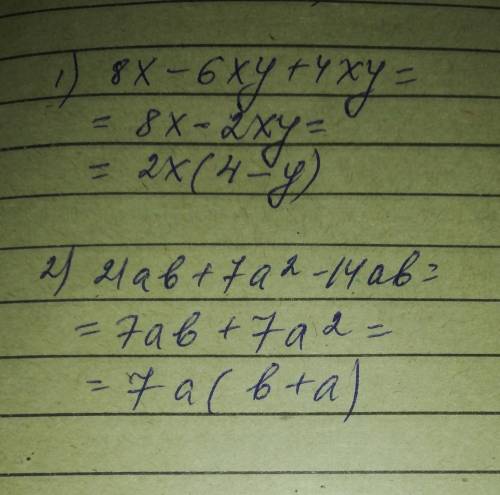 1) 8x - 6xy + 4xy =
= 8x - 2xy =
= 2x(4 - y)
2) 21ab + 7a² - 14ab =
= 7ab + 7a² =
= 7a(b + a)